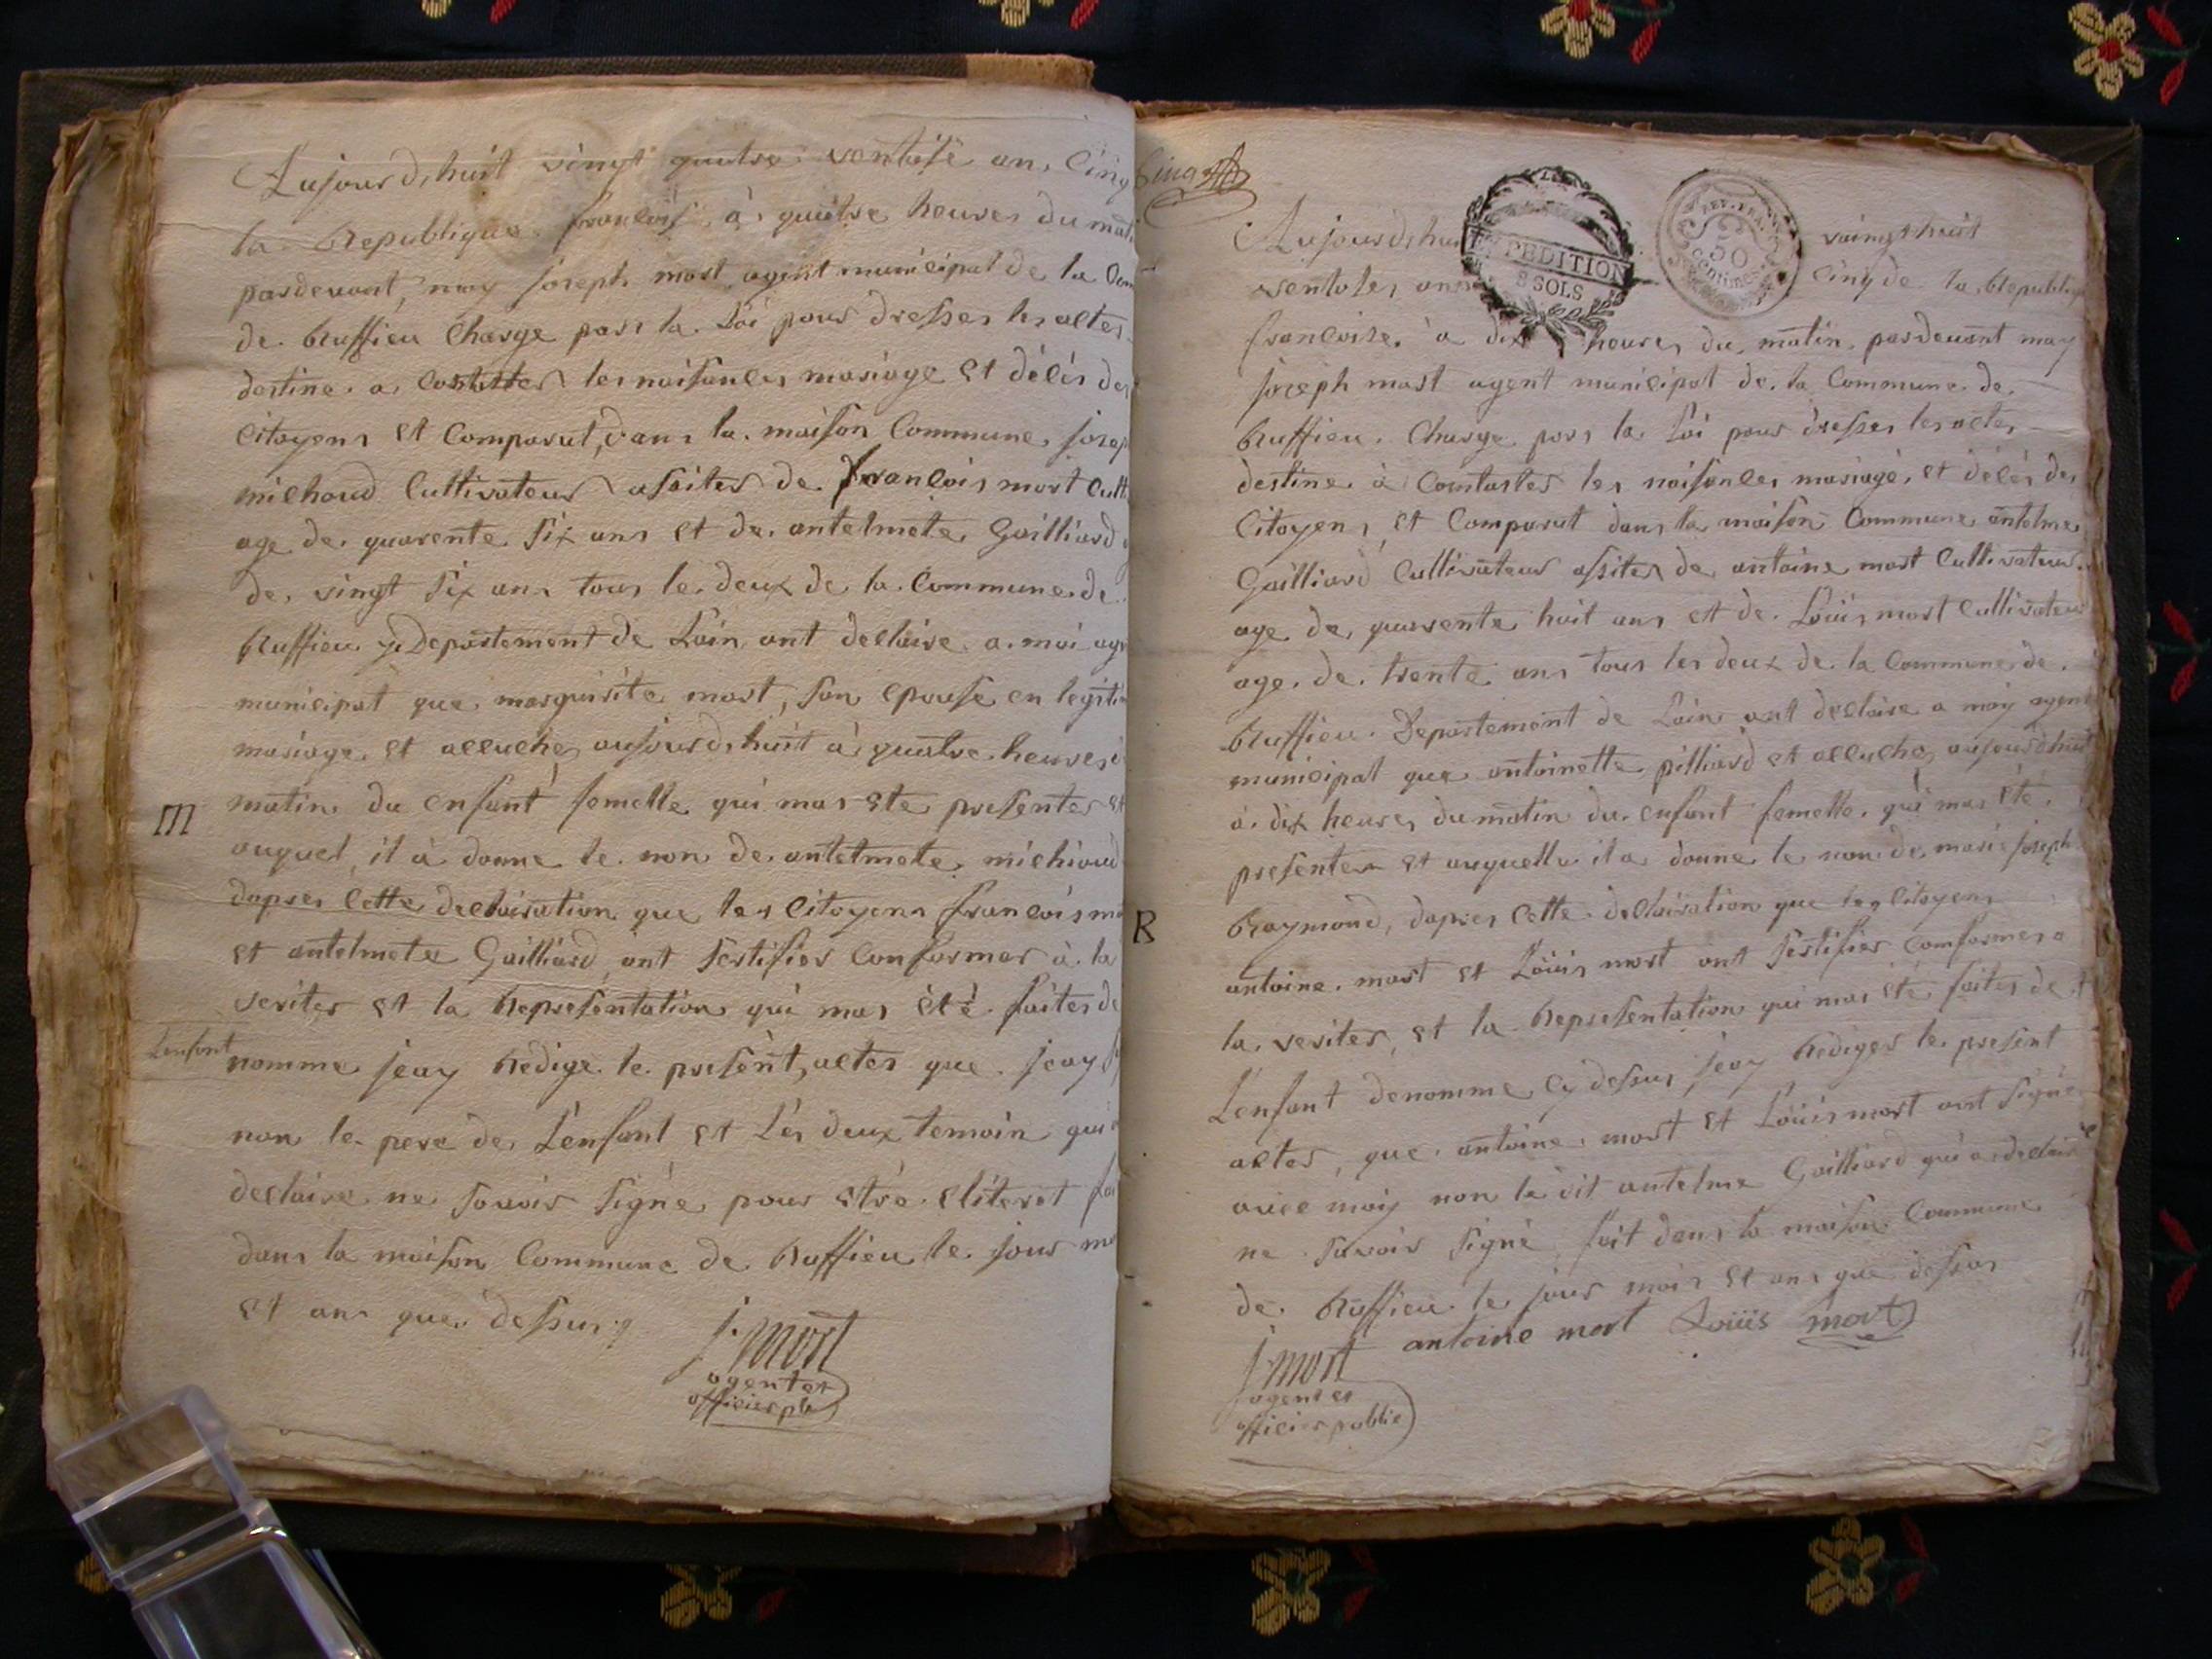 Aujourd,huit vingt quatre ventose an, Cinq
la Republique francois à quatre heures du mati
pardevant, moy joseph mort agent municipal de la Com
de Ruffieu Charge par la Loi pour dresser les actes
destine a Contater les naisances mariage et décés des
citoyens et Comparut, dans la maison Commune, josep
michaud Cultivateur assites de francois mort Cult
age de quarente six ans et de antelmete Gailliard
de vingt six ans tous le deux de la Commune de
Ruffieu Departement de Lain ont declaire a moi age
municipal que marguirite mort, son epouse en legiti
mariage et accuche aujourd,huit à quatre heures
matin du enfant femelle qui mas ete presenter et
m
auquel, il à donne le non de antelmete michaud
dapres cette declairation que les citoyens francois mo
et antelmete Gailliard ont sertifier conformer à la
verites et la Representation qui mas été faites de
Lenfant
nomme jeay Redige le present, actes que jeay
non le pere de L'enfant et Lés deux temoin qui
declaire ne savoir signe pour etre eliteret fai
dans la maison Commune de Ruffieu le jour mo
et an que dessus
j. mort
agent et
officier pb
Aujourd,hui vaingt huit
ventoses ann Cinq de la Republiq
francoise à dix heures du matin pardevant moy
joseph mort agent municipal de la Commune de
Ruffieu Charge par la Loi pour dresser les actes
destine à Contastes les naisances mariage, et décés des
Citoyens, et Comparut dans la maison Commune antelme
Gailliard Cultivateur assites de antoine mort Cultivateur
age de quarente huit ans et de Loüis mort Cultivateur
age de trente ans tous les deux de la Commune de
Ruffieu Departement de Lain ont declaire a moy agent
municipal que antoinette pilliard et accuche aujourdhuit
à dix heures du matin du enfant femelle qui mas été
presenter et auquelle il a donne le non de marie joseph
R
Raymond, dapres cette declairation que les citoyens
antoine mort et Loüis mort ont sertifier comformer a
la verites, et la Representation qui mas été faites de
L'enfant denomme cy dessus jeay Rediges le present
actes, que antoine mort et Loüis mort ont signe
avec moy non le dit antelme Gailliard qui a declaire
ne savoir signé fait dans la maison Commune
de Ruffieu le jour mois et an que dessus
antoine mort Loüis mort
j. mort
agent et
officier public
EXPEDITION
8 SOLS
REP. FRA
50
centimes